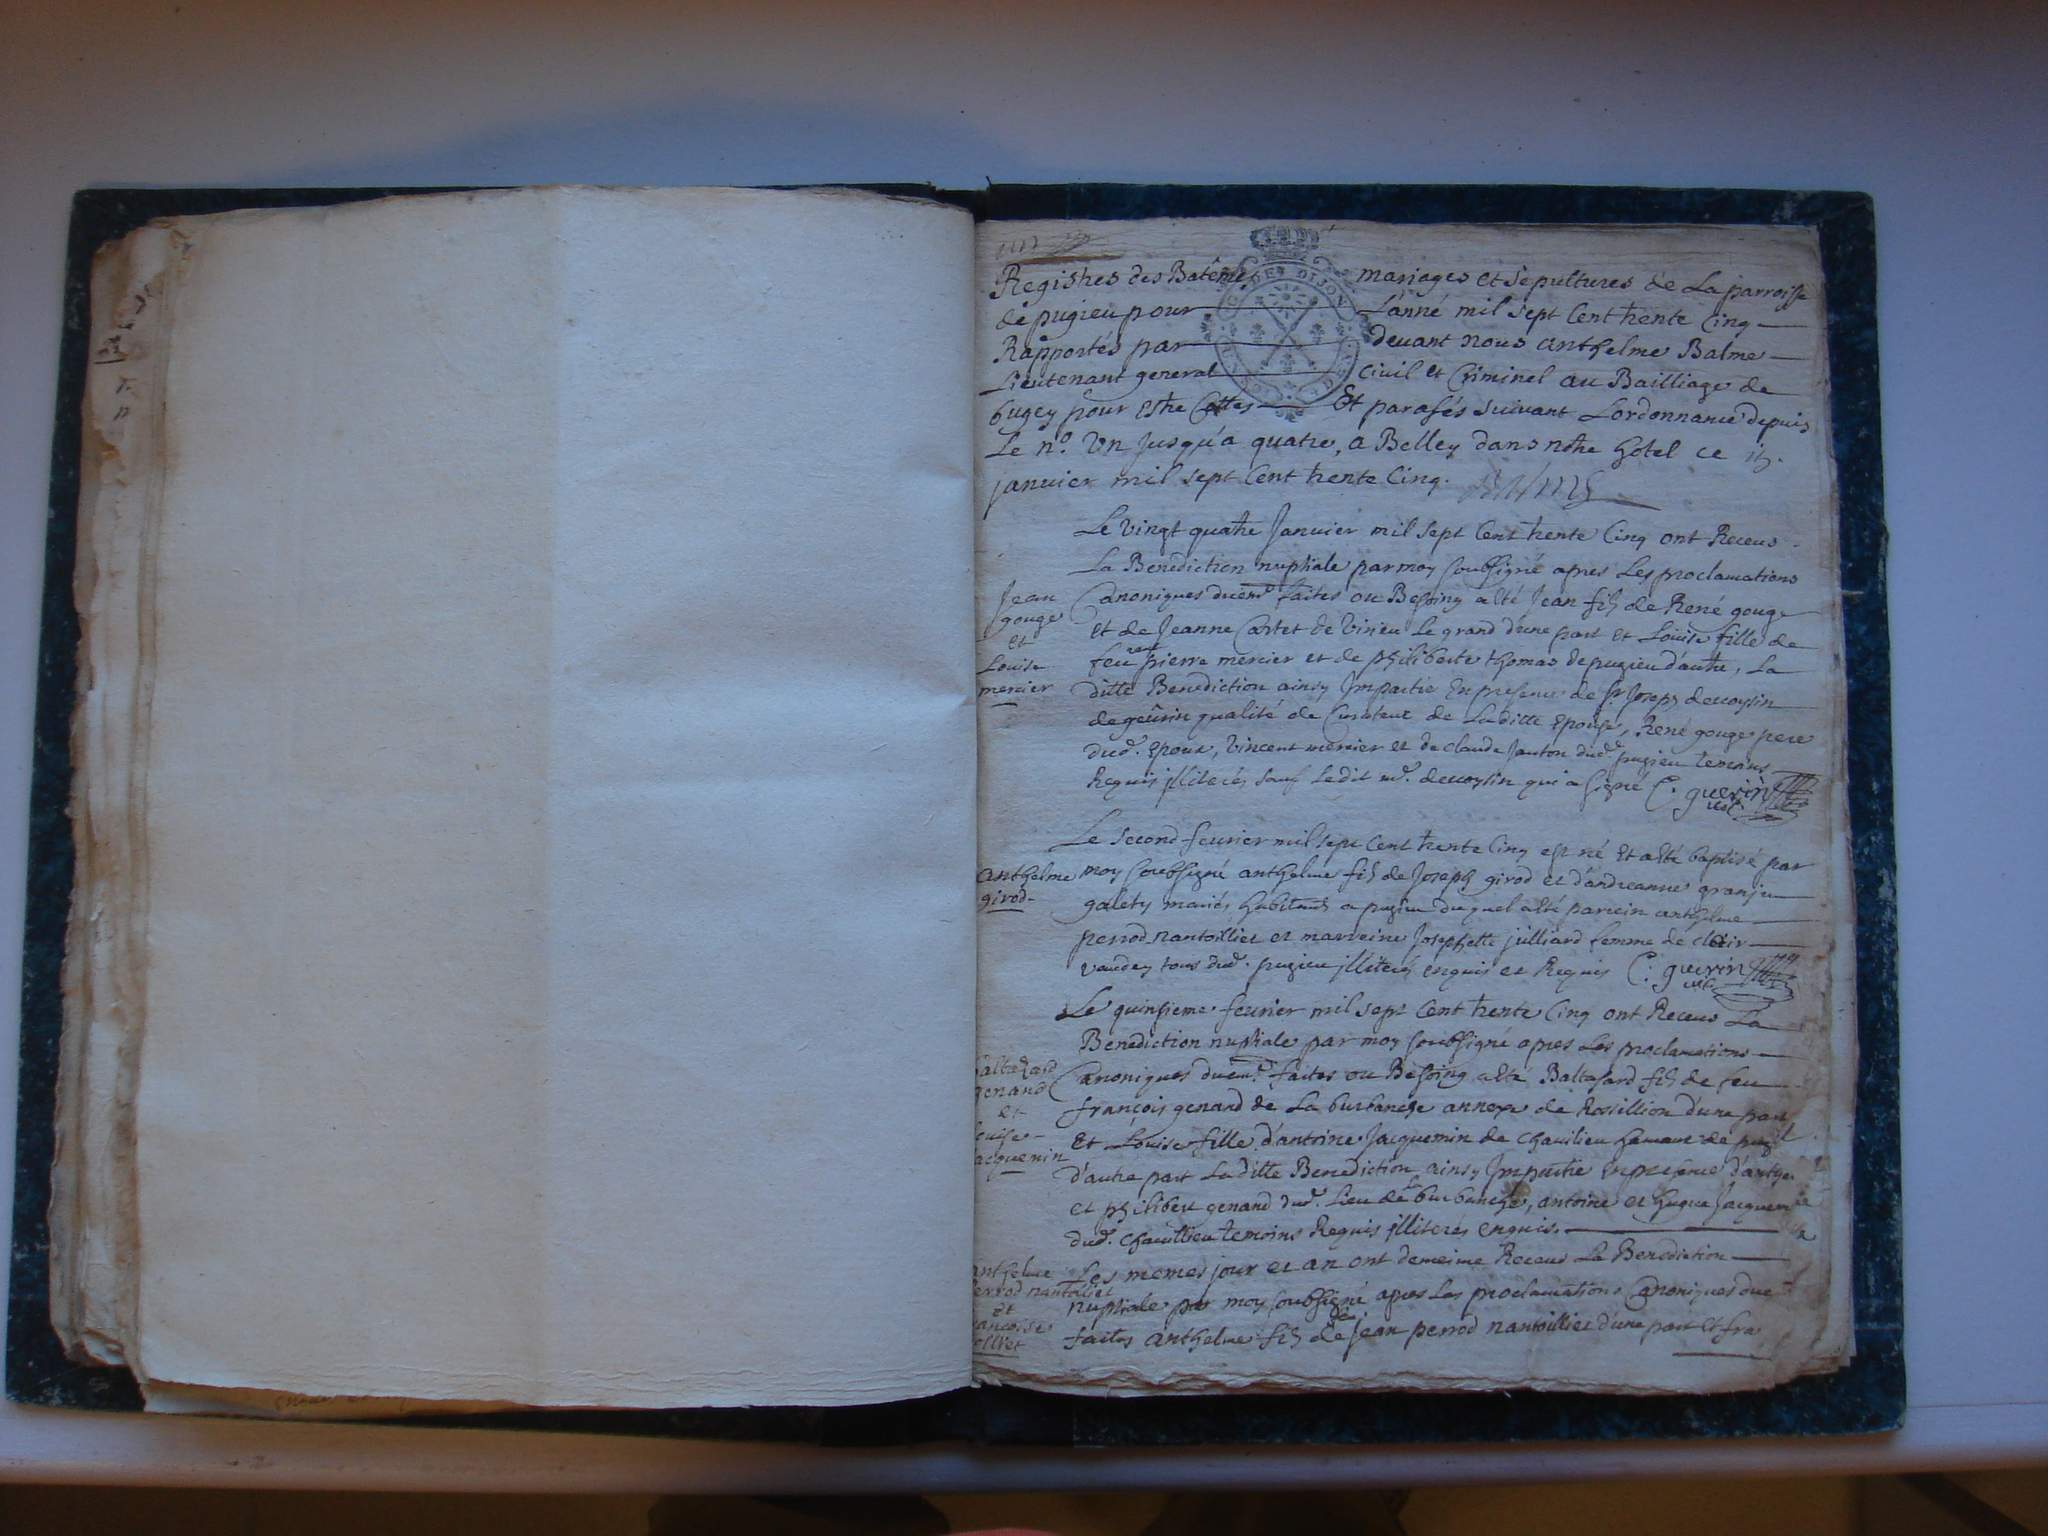 Registres des Batêmes mariages et Sepultures de La parroisse
de pugieu pour L'anné mil sept Cent trente Cinq
Rapportés par devant nous anthelme Balme
Lieutenant general Civil et Criminel au Bailliage de
bugey pour Estre Cottes Et parafés suivant L'ordonnance depuis
Le n.º Un Jusqu'a quatre, a Belley dans notre hotel ce
janvier mil sept Cent trente Cinq. Balme
Le vingt quatre Janvier mil sept Cent trente Cinq ont Receus
La Benediction nuptiale par moy soubsigné apres Les proclamations
Jean gouge et Louise mercier
Canoniques duem.t faites ou Besoing a été Jean fils de René gouge
et de Jeanne Cartet de Virieu Le grand d'une part et Louise fille de
feu pierre mercier et de philiberte thomas de pugieu d'autre, La
ditte Benediction ainsy Impartie En presence de Sr Joseph devoysin
de geûrin qualité de Curateur de La ditte Epouse, René gouge pere
dud. Epoux, Vincent mercier et de claude Janton dud. pugieu temoins
Requis illiterés sauf Ledit mr. devoysin qui a signé C. guerin
Le second fevrier mil sept Cent trente Cinq est né Et a été baptisé par
anthelme girod
moy soubsigné anthelme fils de Joseph girod et d'andreanne granju
galety mariés habitants a pugieu duquel a été parrein anthelme
perrod nantoillier et marreine Josephette julliard femme de clair
vaudey tous dud. pugieu illiterés enquis et Requis C. guerin
Le quinsieme fevrier mil sept Cent trente Cinq ont Receus La
Benediction nuptiale par moy soubsigné apres Les proclamations
altazard genand et Louise acquemin
Canoniques duem.t faites ou Besoing a été Baltasard fils de feu
françois genand de La burbanche annexe de Rossillion d'une part
Et Louise fille d'antoine Jacquemin de chavilieu hameau de
d'autre part La ditte Benediction ainsy Impartie En presence d'anthe
et philibert genand dud. Lieu de La burbanche, antoine et hugue Jacquemin
dud. chavillieu temoins Requis illiterés enquis.
Les memes jour et an ont demeime Receus La Benediction
anthelme perrod nantoillier et ancoise olliet
nuptiale par moy soubsigné apres Les proclamations Canoniques due
faites anthelme fils de Jean perrod nantoillier d'une part Et fra